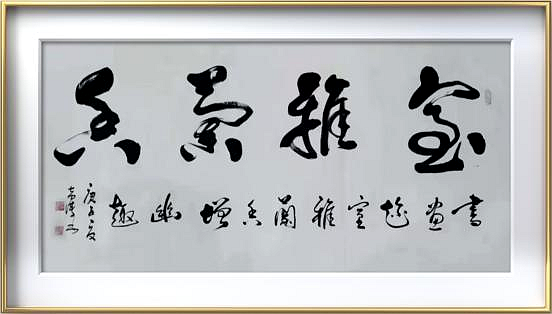 室雅蘭香
書畫室雅蘭香增幽趣
庚子夏